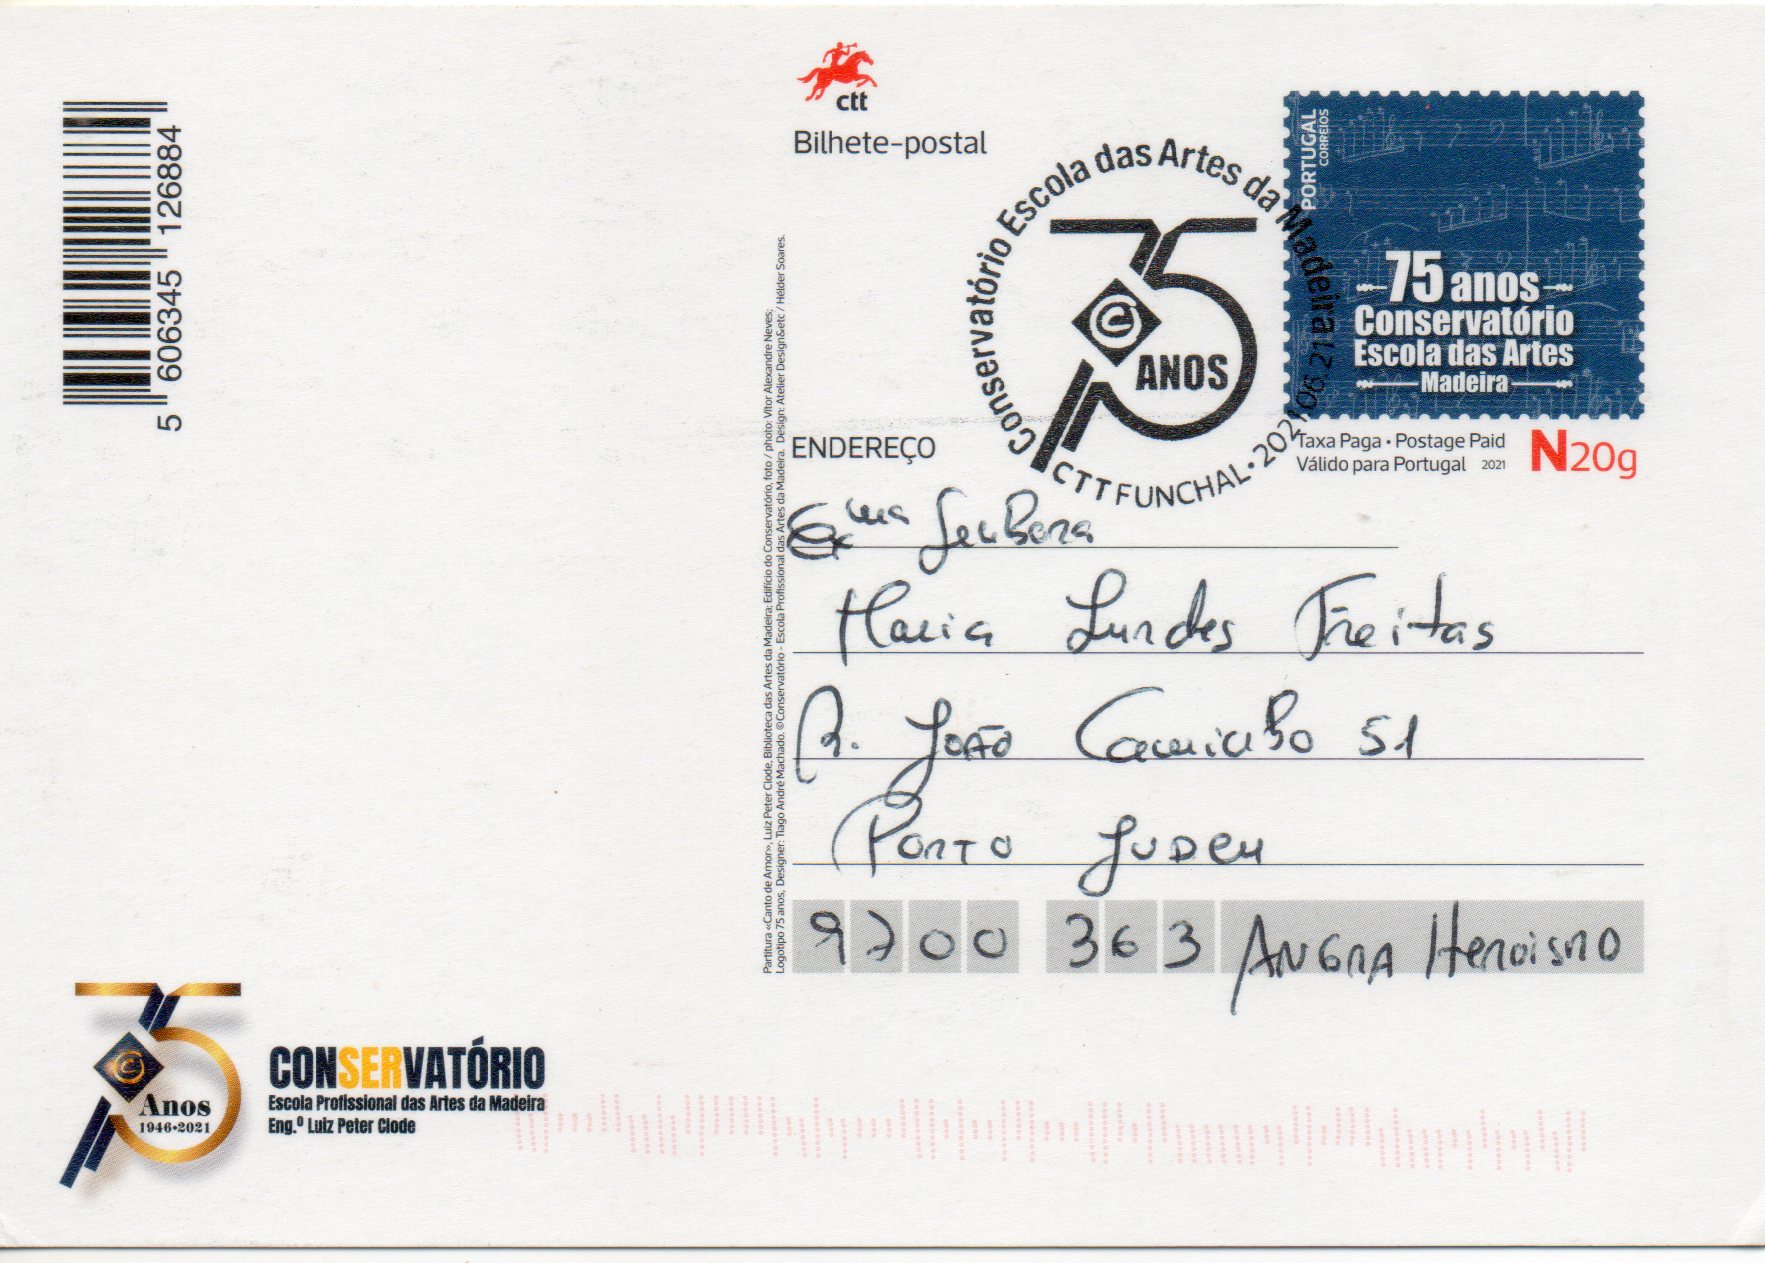 5 606345 126884
ctt
Bilhete-postal
Conservatório Escola das Artes da Madeira
75
C
ANOS
CTT FUNCHAL • 2021 06 21
PORTUGAL
CORREIOS
75 anos
Conservatório
Escola das Artes
Madeira
Taxa Paga • Postage Paid
Válido para Portugal 2021
N20g
ENDEREÇO
Exma Senhora
Maria Lurdes Freitas
R. João Caminho 51
Porto Judeu
9700 363 Angra Heroismo
Partitura «Canto de Amor», Luiz Peter Clode, Biblioteca das Artes da Madeira; Edifício do Conservatório, foto / photo: Vítor Alexandre Neves;
Logotipo 75 anos, Designer: Tiago André Machado. ©Conservatório - Escola Profissional das Artes da Madeira. Design: Atelier Design&etc / Hélder Soares.
75
C
Anos
1946•2021
CONSERVATÓRIO
Escola Profissional das Artes da Madeira
Eng.º Luiz Peter Clode